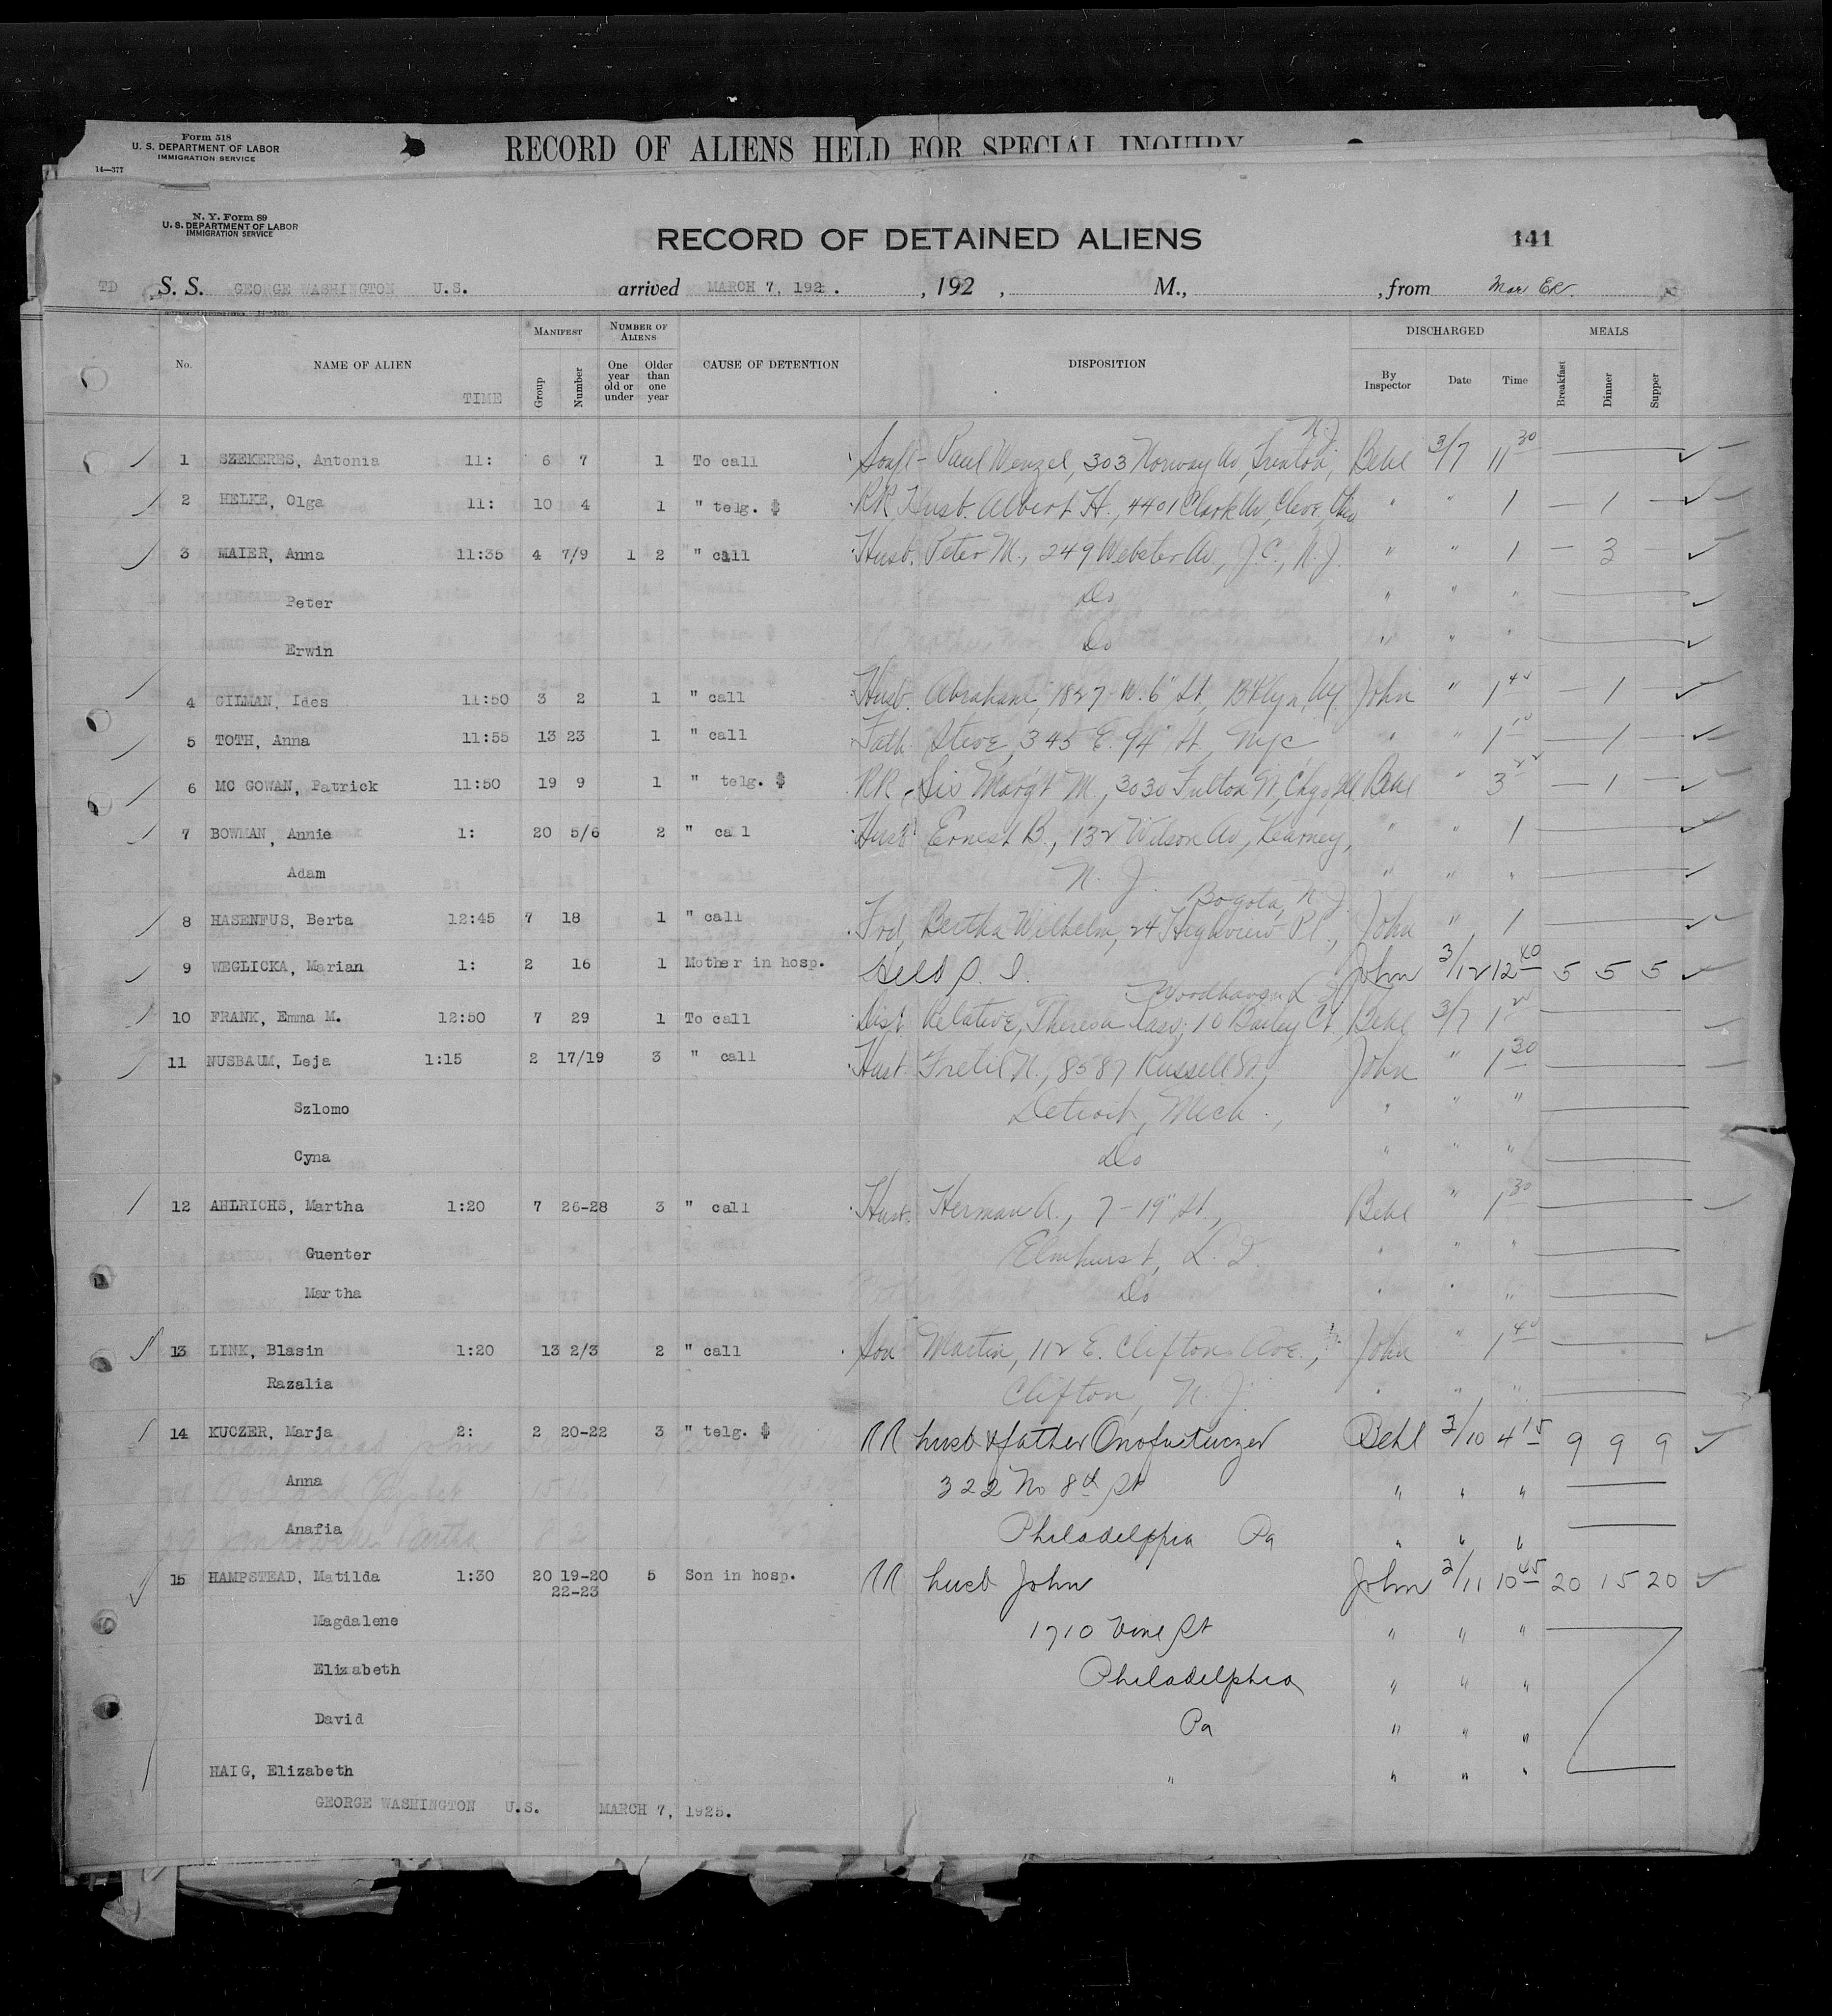 Form 518
U. S. DEPARTMENT OF LABOR
IMMIGRATION SERVICE
14—377
RECORD OF ALIENS HELD FOR SPECIAL INQUIRY
N. Y. Form 89
U. S. DEPARTMENT OF LABOR
IMMIGRATION SERVICE
RECORD OF DETAINED ALIENS
141
TD S. S. GEORGE WASHINGTON U.S. arrived MARCH 7, 192 . , 192 , M., , from
No. NAME OF ALIEN TIME MANIFEST Group Number NUMBER OF ALIENS One year old or under Older than one year CAUSE OF DETENTION DISPOSITION DISCHARGED By Inspector Date Time MEALS Breakfast Dinner Supper
N.J.
1 SZEKERES, Antonia 11: 6 7 1 To call Paul Wenzel, 303 Norway Av, Trenton, Behl 3/7 11 30
2 HELKE, Olga 11: 10 4 1 " telg. $ RR Husb. Albert H., 4401 Clark Av, Cleve, Ohio " " 1 — 1 —
3 MAIER, Anna 11:35 4 7/9 1 2 " call Husb. Peter M., 249 Webster Av, J.C., N.J. " " 1 — 3
Peter Do " " "
Erwin Do " " "
4 GILMAN, Ides 11:50 3 2 1 " call Husb. Abraham, 1827 - W. 6" St, Bklyn, NY John " 1 40 — 1 —
5 TOTH, Anna 11:55 13 23 1 " call Fath. Steve, 345 E. 94" St, Nyc " " 1 10 — 1 —
6 MC GOWAN, Patrick 11:50 19 9 1 " telg. $ RR Sis Marg't M., 3030 Fulton St, Chgo, Ill Behl " 3 — 1 —
7 BOWMAN, Annie 1: 20 5/6 2 " call Husb Ernest B., 132 Wilson Av, Kearney, " " 1
Adam N. J. " " "
Bogota, N.J.
8 HASENFUS, Berta 12:45 7 18 1 " call Frd, Bertha Wilhelm, 24 Highview Pl., John " 1
9 WEGLICKA, Marian 1: 2 16 1 Mother in hosp. Held S. I. John 3/12 12 40 5 5 5
Woodhaven L I
10 FRANK, Emma M. 12:50 7 29 1 To call Dist Relative, Theresa 10 Bailey Ct, Behl 3/7 1
11 NUSBAUM, Leja 1:15 2 17/19 3 " call Husb. N., 8587 Russell St, John " 1 30
Szlomo Detroit, Mich. " " "
Cyna Do " " "
12 AHLRICHS, Martha 1:20 7 26-28 3 " call Husb. Herman A., 7 - 19" St, Behl " 1 30
Guenter Elmhurst, L. I. " " "
Martha Do " " "
13 LINK, Blasin 1:20 13 2/3 2 " call Son Martin, 112 E. Clifton Ave., John " 1 40
Razalia Clifton, N. J. " " "
14 KUCZER, Marja 2: 2 20-22 3 " telg. $ RR husb & father Behl 3/10 4 15 9 9 9
Anna 322 No 8th St " " "
Anafia Philadelphia Pa " " "
15 HAMPSTEAD, Matilda 1:30 20 19-20 5 Son in hosp. RR husb John John 3/11 10 45 20 15 20
22-23
Magdalene 1710 Vine St " " "
Elizabeth Philadelphia " " "
David Pa " " "
HAIG, Elizabeth " " " "
GEORGE WASHINGTON U.S. MARCH 7, 1925.